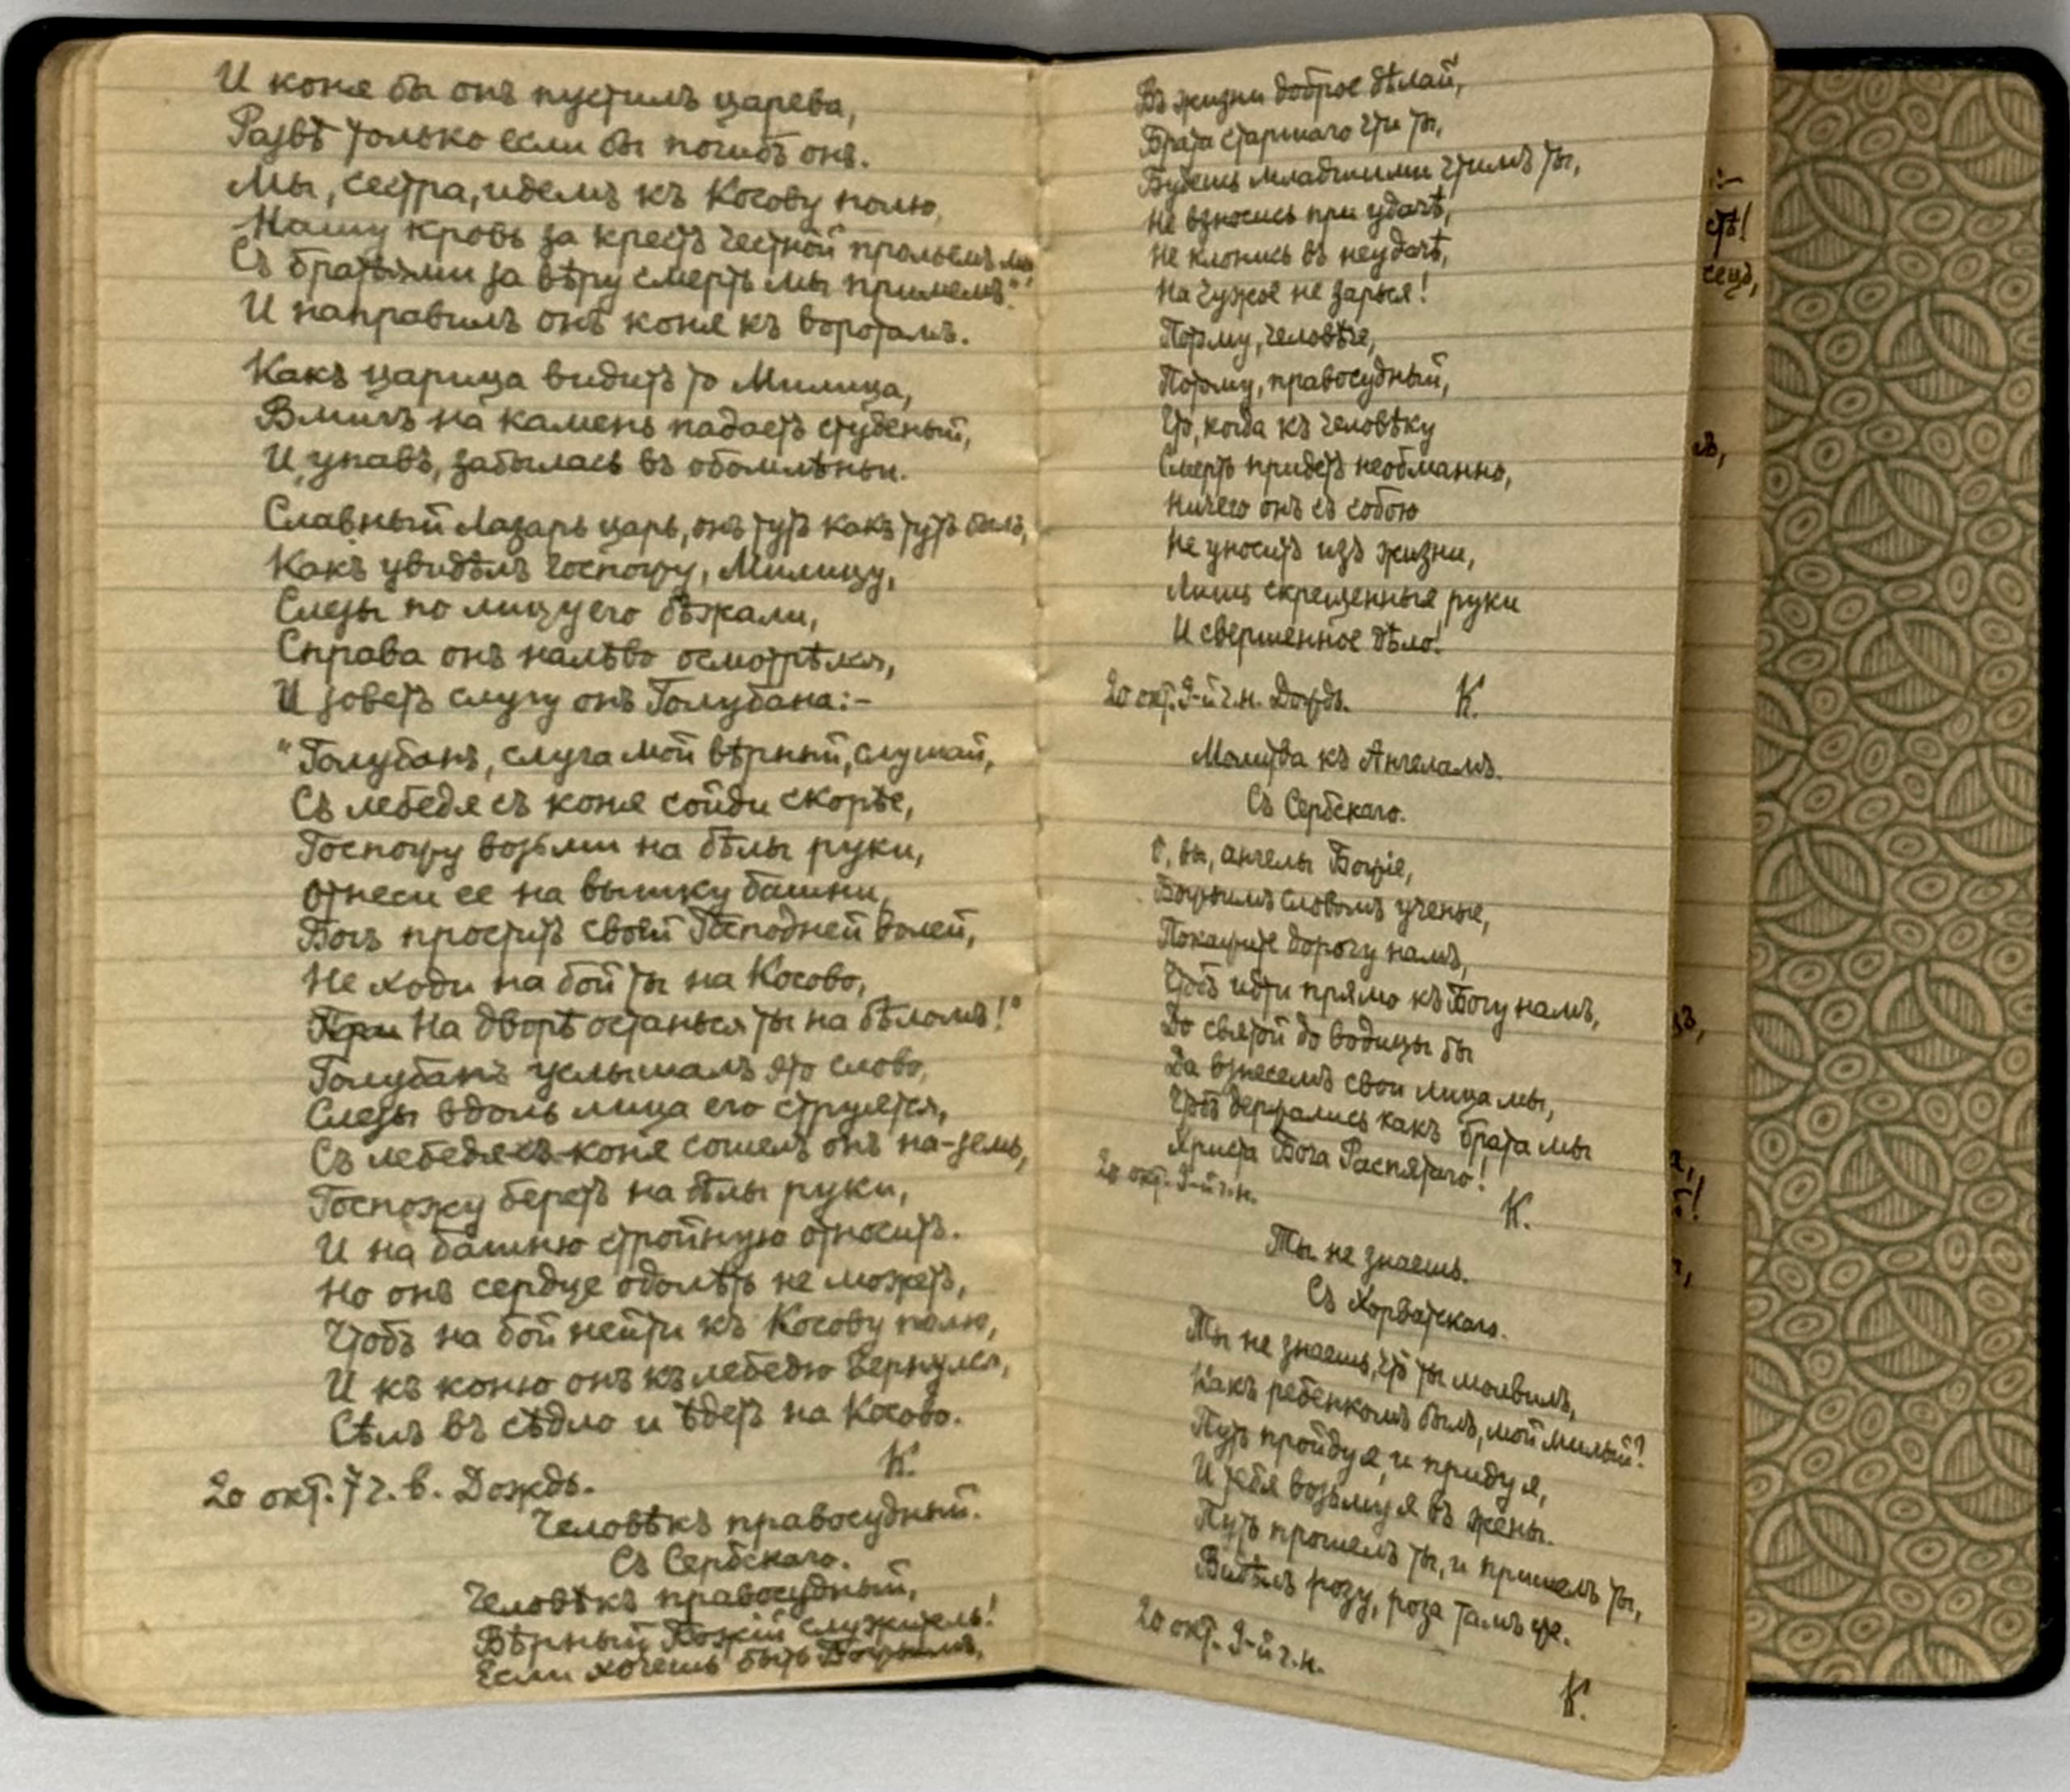 И коня бы онъ пустилъ царева,
Развѣ только если бы погибъ онъ.
Мы, сестра, идемъ къ Косову полю,
Нашу кровь за крестъ честной прольемъ мы,
Съ братьями за вѣру смерть мы примемъ."
И направилъ онъ коня къ воротамъ.
Какъ царица видитъ то Милица,
Вмигъ на камень падаетъ студеный,
И, упавъ, забылась въ обомлѣньи.
Славный Лазарь царь, онъ тутъ какъ тутъ былъ,
Какъ увидѣлъ госпожу, Милицу,
Слезы по лицу его бѣжали,
Справа онъ налѣво осмотрѣлся,
И зоветъ слугу онъ Голубана:-
"Голубанъ, слуга мой вѣрный, слушай,
Съ лебедя съ коня сойди скорѣе,
Госпожу возьми на бѣлы руки,
Отнеси ее на вышку башни,
Богъ проститъ своей Господней волей,
Не ходи на бой ты на Косово,
При На дворѣ останься ты на бѣломъ!"
Голубанъ услышалъ это слово,
Слезы вдоль лица его струятся,
Съ лебедя съ коня сошелъ онъ на-земь,
Госпожу беретъ на бѣлы руки,
И на башню стройную относитъ.
Но онъ сердце одолѣть не можетъ,
Чтобъ на бой нейти къ Косову полю,
И къ коню онъ къ лебедю вернулся,
Сѣлъ въ сѣдло и ѣдетъ на Косово.
К.
20 окт. 7 ч. в. Дождь.
Человѣкъ правосудный.
Съ Сербскаго.
Человѣкъ правосудный,
Вѣрный Божій служитель!
Если хочешь быть Божьимъ,
Въ жизни доброе дѣлай,
Брата старшаго чти ты,
Будешь младшими чтимъ ты,
Не взносись при удачѣ,
Не клонись въ неудачѣ,
На чужое не зарься!
Потому, человѣче,
Потому, правосудный,
Что, когда къ человѣку
Смерть придетъ необманно,
Ничего онъ съ собою
Не уноситъ изъ жизни,
Лишь скрещенныя руки
И свершенное дѣло!
20 окт. 9-й ч. н. Дождь. К.
Молитва къ Ангеламъ.
Съ Сербскаго.
О, вы, ангелы Божіе,
Божьимъ словомъ ученые,
Покажите дорогу намъ,
Чтобъ идти прямо къ Богу намъ,
До святой до водицы бы
Да взнесемъ свои лица мы,
Чтобъ держались какъ брата мы
Христа Бога Распятаго!
20 окт. 9-й ч. н.
К.
Ты не знаешь.
Съ Хорватскаго.
Ты не знаешь, что ты молвилъ,
Какъ ребенкомъ былъ, мой милый?
Путь пройду я, и приду я,
И тебя возьму я въ жены.
Путь прошелъ ты, и пришелъ ты,
Видѣлъ розу, роза тамъ же.
20 окт. 9-й ч. н.
К.